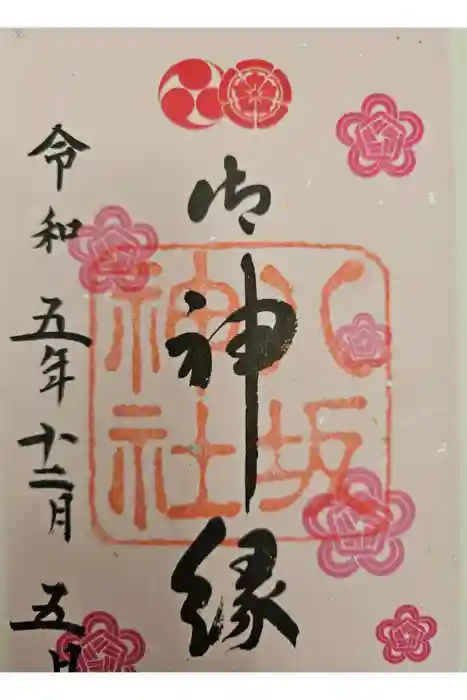 御神縁
八坂
神社
令和五年十二月五日